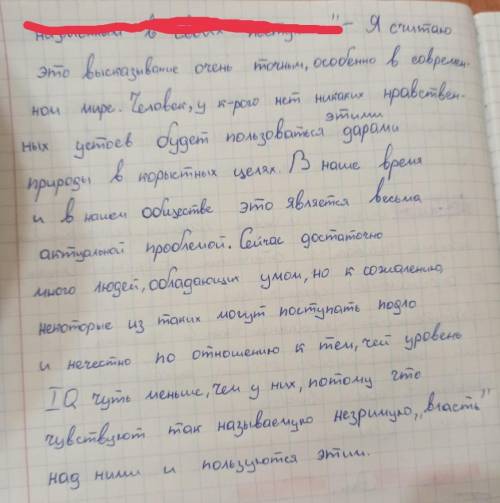 " - Я считаю
это высказывание очень точным, особенно в современ-
ном мире. Человек, у к-рого нет никаких нравствен-
этими
ных устоев будет пользоваться дарами
природы в корыстных целях. В наше время
и в нашем обществе это является весьма
актуальной проблемой. Сейчас достаточно
много людей, обладающих умом, но к сожалению
некоторые из таких могут поступать подло
и нечестно по отношению к тем, чей уровень
IQ чуть меньше, чем у них, потому что
чувствуют так называемую незримую „власть"
над ними и пользуются этим.